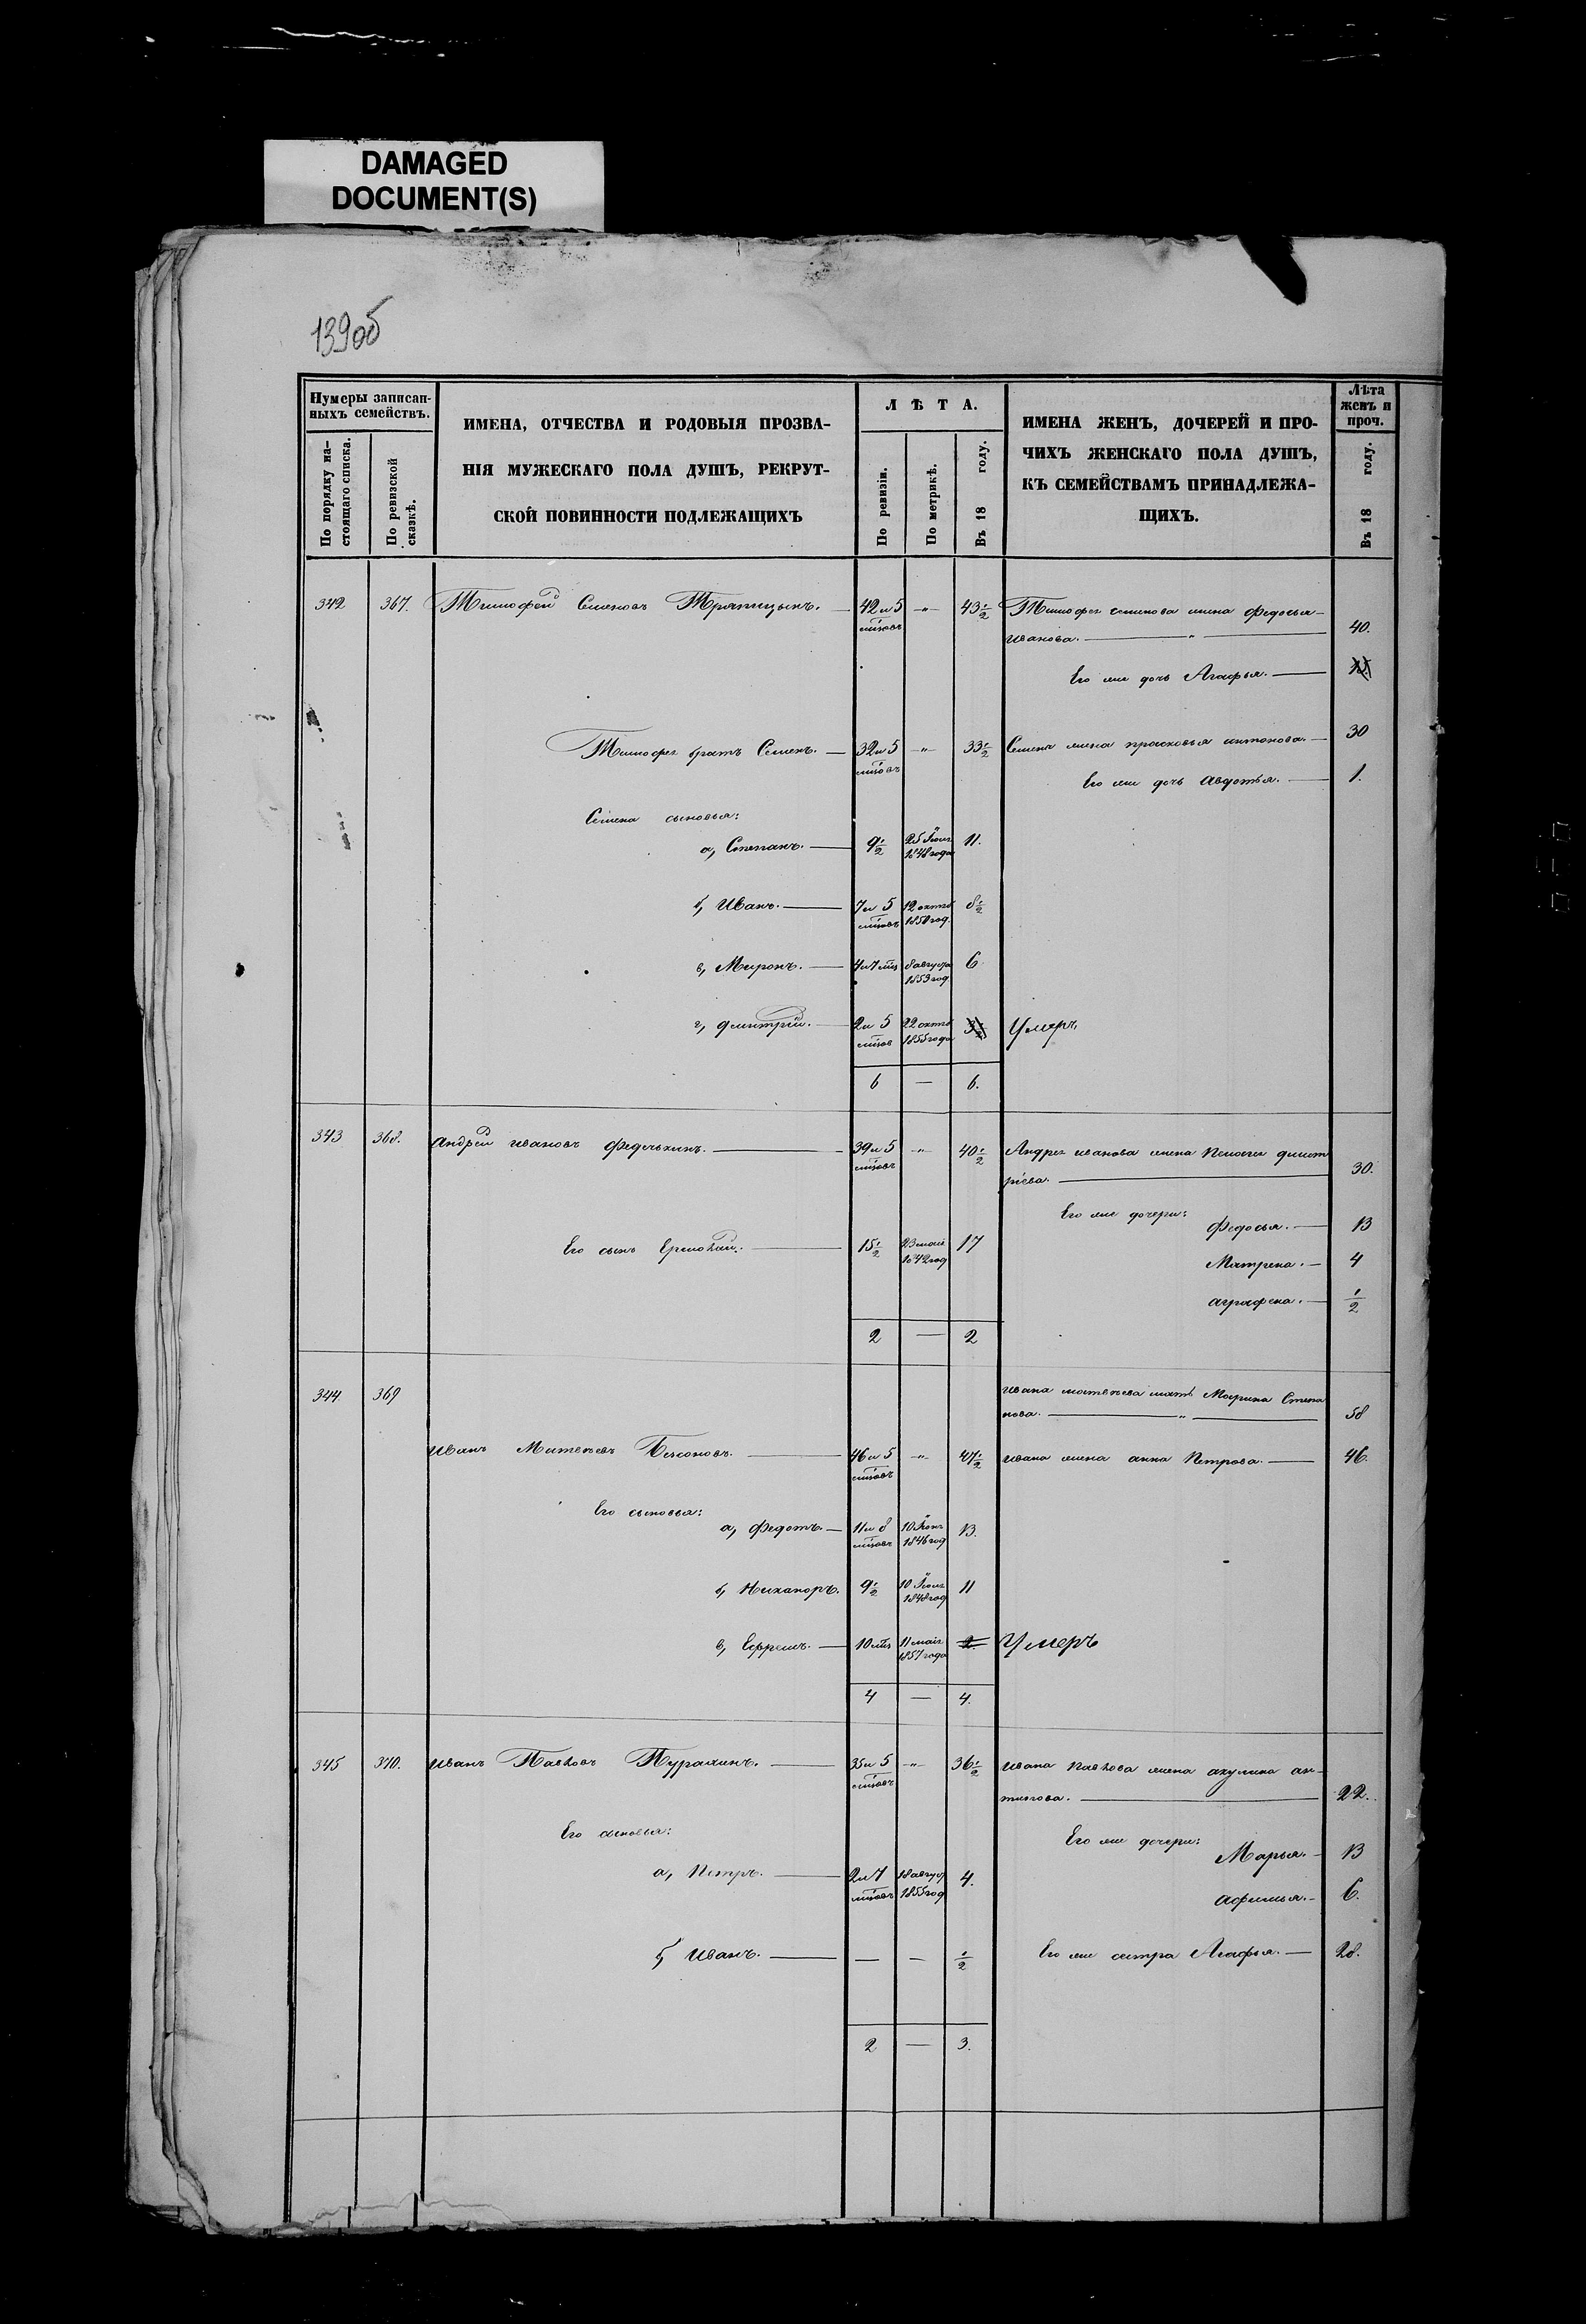 DAMAGED
DOCUMENT(S)
139об
Нумеры записан-
ныхъ семействъ.
По порядку на-
стоящаго списка.
По ревизской
сказкѣ.
ИМЕНА, ОТЧЕСТВА И РОДОВЫЯ ПРОЗВА-
НІЯ МУЖЕСКАГО ПОЛА ДУШЪ, РЕКРУТ-
СКОЙ ПОВИННОСТИ ПОДЛЕЖАЩИХЪ
ЛѢТА.
По ревизіи.
По метрикѣ.
Въ 18 году.
ИМЕНА ЖЕНЪ, ДОЧЕРЕЙ И ПРО-
ЧИХЪ ЖЕНСКАГО ПОЛА ДУШЪ,
КЪ СЕМЕЙСТВАМЪ ПРИНАДЛЕЖА-
ЩИХЪ.
Лѣта
женъ и
проч.
Въ 18 году.
342 367. Тимофей Семеновъ 42 и 5 мѣсяцовъ -„- 43 1/2 Тимофея Семенова жена Федосья
Иванова. -„- 40.
Его же дочь Агафья.
Тимофея братъ Семенъ. 32 и 5 мѣсяцовъ -„- 33 1/2 Семена жена Прасковья Антонова. 30
Его же дочь Авдотья. 1.
Семена сыновья:
а, Степанъ. 9 1/2 25 Іюля 1848 года 11.
б, Иванъ. 7 и 5 мѣсяцовъ 12 октяб 1850 год. 8 1/2
в, Миронъ. 4 и 7 мѣс 8 августа 1853 год 6
г, Дмитрій. 2 и 5 мѣсяцов 22 октяб 1855 года 3 1/2 Умеръ
6 — 6.
343 368. Андрей Ивановъ Федечькинъ. 39 и 5 мѣсяцовъ -„- 40 1/2 Андрея Иванова жена Пелагея Дмит
ріева. 30.
Его же дочери:
Федосья. 13
Его сынъ Ермолай. 15 1/2 23 маія 1842 год 17
Матрена. 4
Аграфена. 1/2
2 — 2
344 369 Ивана Матвеева мать Марина Степа
нова. -„- 58
Иванъ Матвеевъ Безсоновъ. 46 и 5 мѣсяцовъ -„- 47 1/2 Ивана жена Анна Петрова. 46.
Его сыновья:
а, Федотъ. 11 и 8 мѣсяцовъ 10 1846 год 13.
б, Никаноръ. 9 1/2 10 Іюля 1848 год 11
в, Ефремъ. 10 мѣс 11 маія 1857 года 2. Умеръ
4 — 4.
345 370. Иванъ Павловъ 35 и 5 мѣсяцовъ -„- 36 1/2 Ивана Павлова жена Акулина Ан
типова. 22.
Его сыновья:
Его же дочери:
Марья. 13
а, Петръ. 2 и 7 мѣсяцовъ 18 август 1855 год 4.
Афимья. 6.
б, Иванъ. — — 1/2 Его же сестра Агафья. 28.
2 — 3.